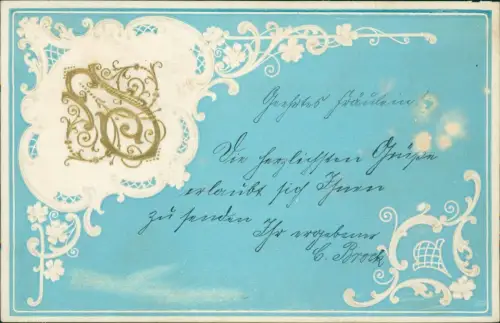 S
Geehrtes Fräulein!
Die herzlichsten Grüße
erlaubt sich Ihnen
zu senden
Ihr ergebener
C. Brock